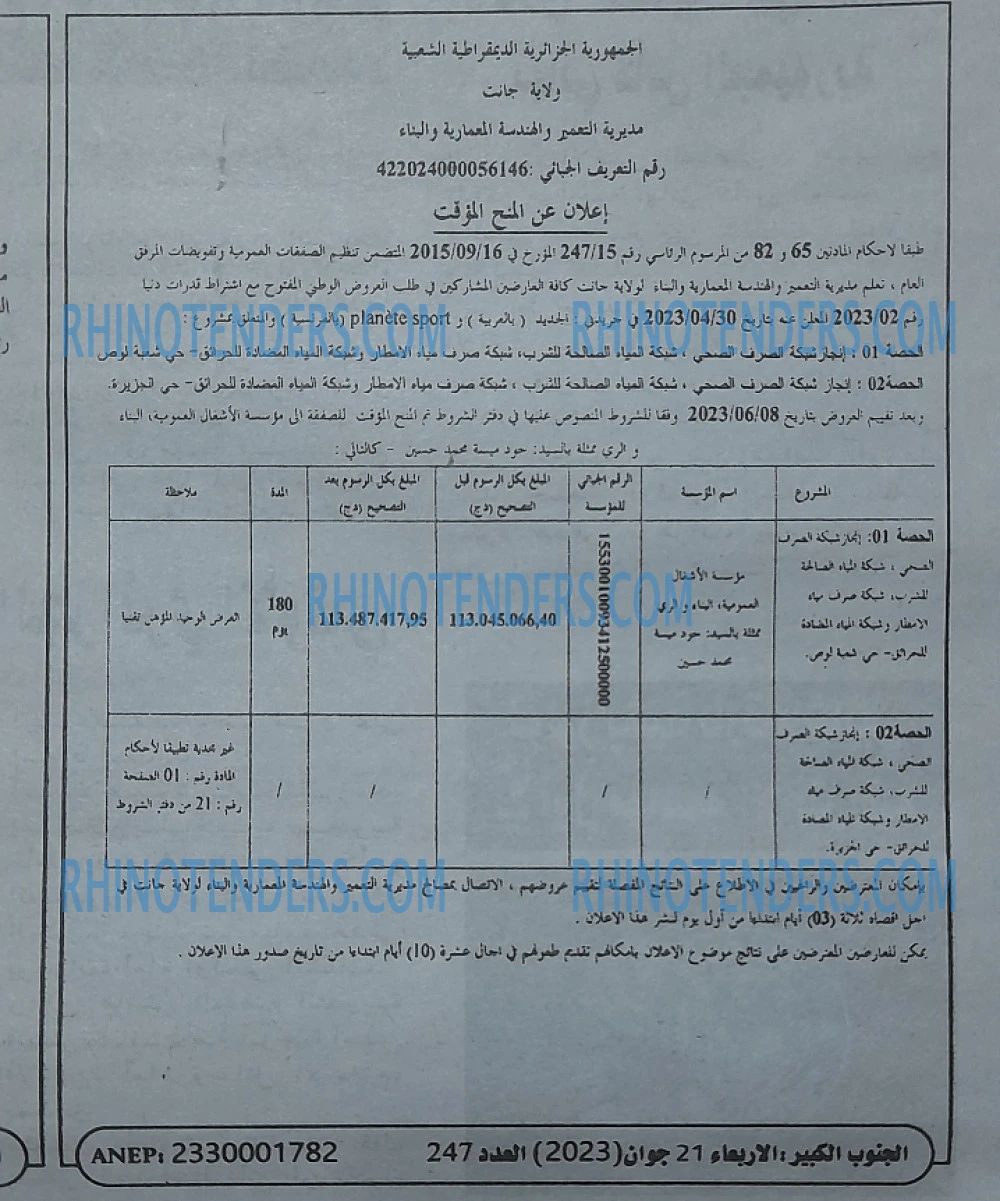 الجمهورية الجزائرية الديمقراطية الشعبية
ولاية جانت
مديرية التعمير والهندسة المعمارية والبناء
رقم التعريف الجبائي :422024000056146
إعلان عن المنح المؤقت
طبقا لاحكام المادتين 65 و 82 من المرسوم الرئاسي رقم 247/15 المؤرخ في 2015/09/16 المتضمن تنظيم الصفقات العمومية وتفويضات المرفق
العام ، تعلم مديرية التعمير والهندسة المعمارية والبناء لولاية جانت كافة العارضين المشاركين في طلب العروض الوطني المفتوح مع اشتراط قدرات دنيا
رقم 2023/02 المعلن عنه بتاريخ 2023/04/30 في جريدتي : الجديد ( بالعربية ) و planète sport (بالفرنسية ) والمتعلق بمشروع :
الحصة 01 : إنجاز شبكة الصرف الصحي ، شبكة المياه الصالحة للشرب، شبكة صرف مياه الامطار وشبكة المياه المضادة للحرائق- حي شعبة لوص
الحصة02 : إنجاز شبكة الصرف الصحي ، شبكة المياه الصالحة للشرب ، شبكة صرف مياه الامطار وشبكة المياه المضادة للحرائق- حي الجزيرة.
وبعد تقييم العروض بتاريخ 2023/06/08 وفقا للشروط المنصوص عليها في دفتر الشروط تم المنح المؤقت للصفقة الى مؤسسة الأشغال العمومية، البناء
و الري ممثلة بالسيد: حود ميسة محمد حسين - كالتالي :
المشروع
اسم المؤسسة
الرقم الجبائي
للمؤسسة
المبلغ بكل الرسوم قبل
التصحيح (دج)
المبلغ بكل الرسوم بعد
التصحيح (دج)
المدة
ملاحظة
الحصة 01: إنجاز شبكة الصرف
الصحي ، شبكة المياه الصالحة
للشرب، شبكة صرف مياه
الامطار وشبكة المياه المضادة
للحرائق- حي شعبة لوص.
مؤسسة الأشغال
العمومية، البناء و الري
ممثلة بالسيد: حود ميسة
محمد حسين
113.045.066,40
113.487.417,95
180
يوم
العرض الوحيد المؤهل تقنيا
الحصة02 : إنجاز شبكة الصرف
الصحي ، شبكة المياه الصالحة
للشرب، شبكة صرف مياه
الامطار وشبكة المياه المضادة
للحرائق- حي الجزيرة.
/
/
/
/
غير مجدية تطبيقا لأحكام
المادة رقم : 01 الصفحة
رقم : 21 من دفتر الشروط
بإمكان المعترضين والراغبين في الاطلاع على النتائج المفصلة لتقييم عروضهم ، الاتصال بمصالح مديرية التعمير والهندسة المعمارية والبناء لولاية جانت في
اجل اقصاه ثلاثة (03) أيام ابتداءا من أول يوم لنشر هذا الاعلان .
يمكن للعارضين المعترضين على نتائج موضوع الاعلان بامكانهم تقديم طعونهم في اجال عشرة (10) أيام ابتداءا من تاريخ صدور هذا الاعلان .
الجنوب الكبير :الاربعاء 21 جوان(2023) العدد 247
ANEP: 2330001782
RHINOTENDERS.COM
RHINOTENDERS.COM
RHINOTENDERS.COM
RHINOTENDERS.COM
RHINOTENDERS.COM